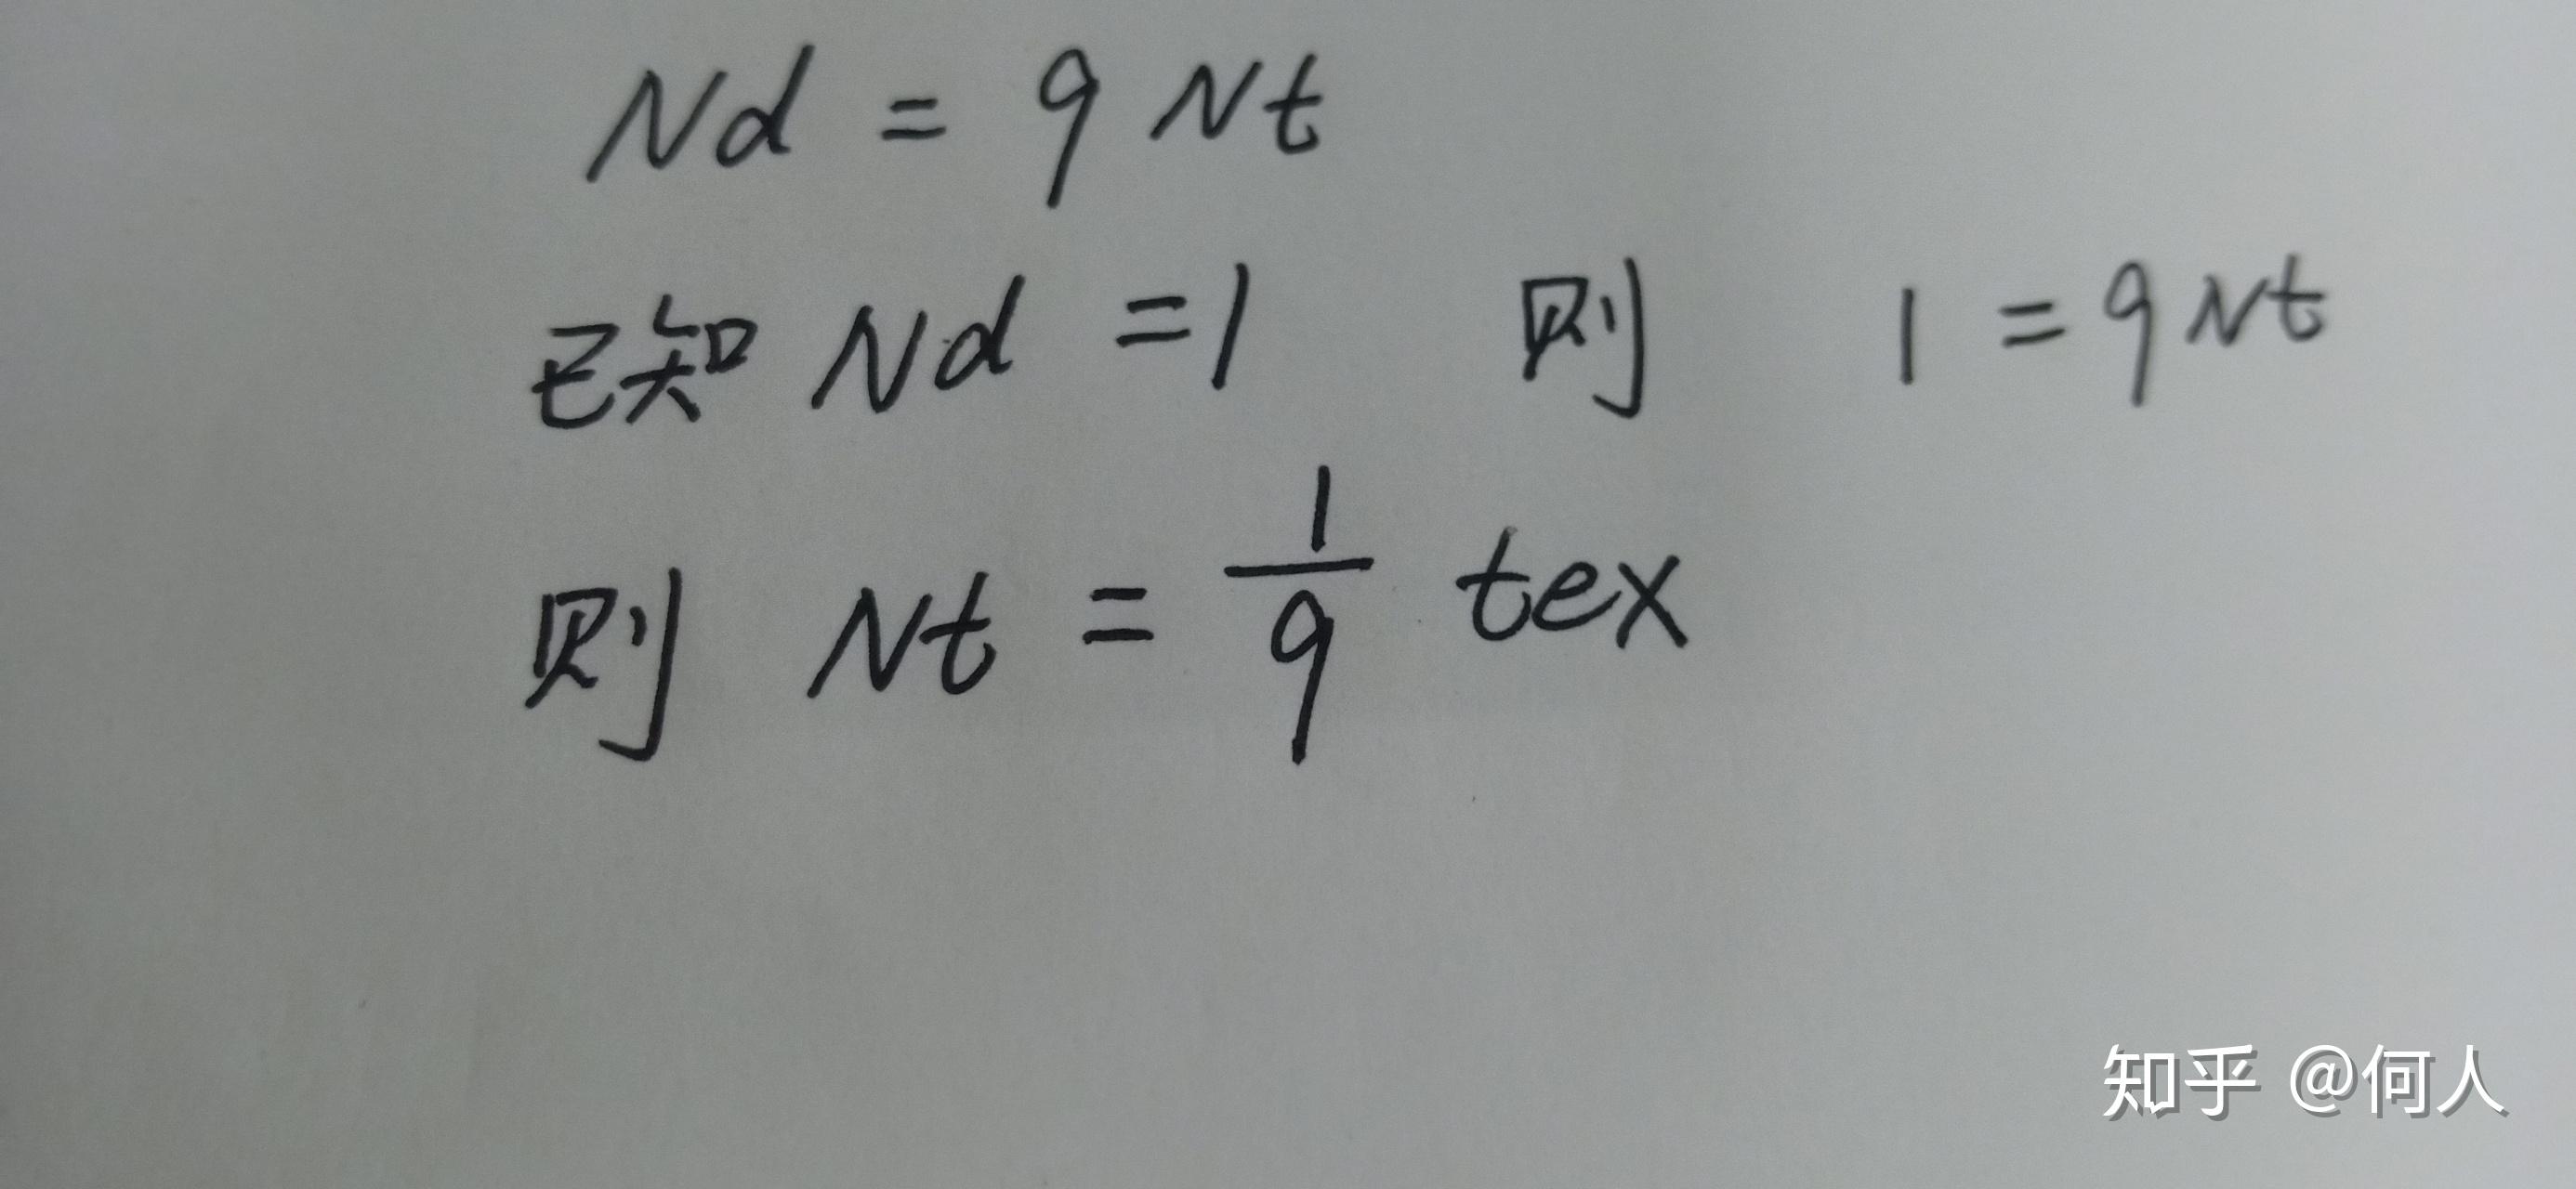 Nd = 9 Nt
已知 Nd = 1 则 1 = 9 Nt
则 Nt = 1/9 tex
知乎 @何人